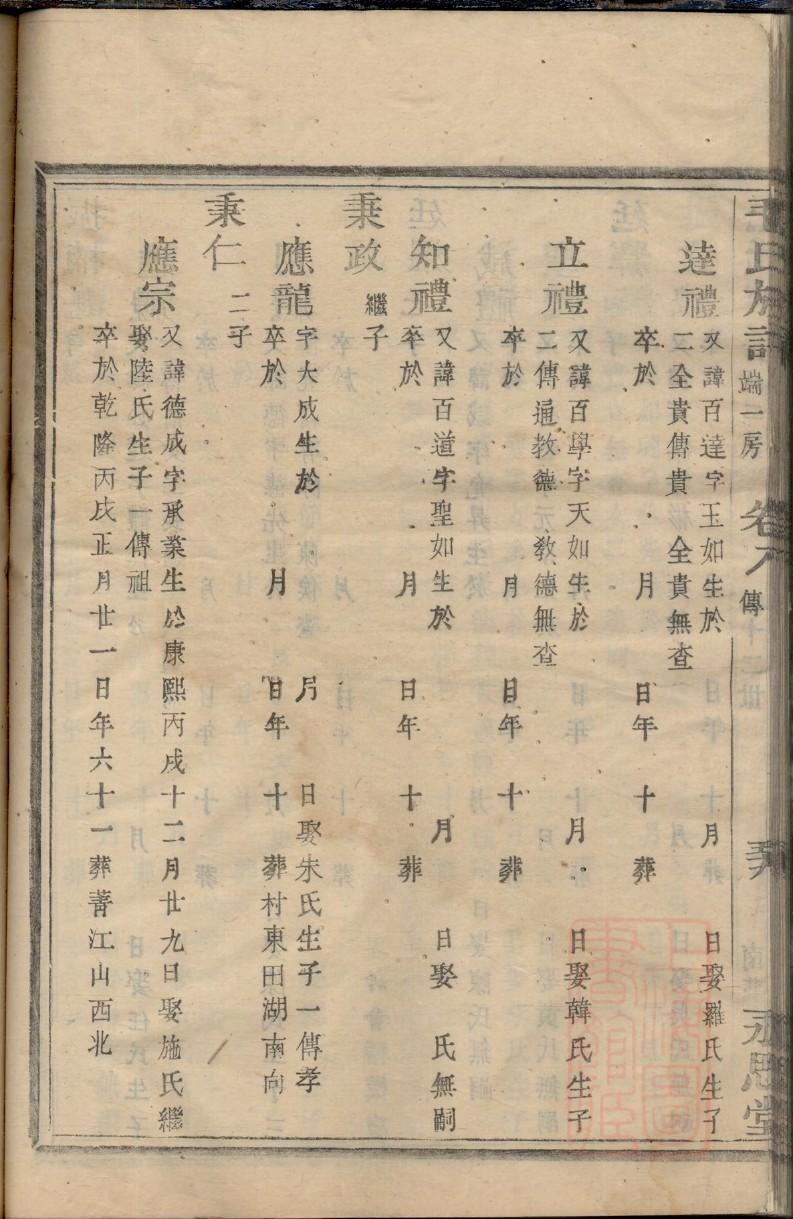 毛氏族譜 端一房 卷八 傳 永思堂
達禮 又諱百達字玉如生於 月 日娶羅氏生子
二全貴傳貴 全貴無查
卒於 月 日年 十 葬
立禮 又諱百學字天如生於 月 日娶韓氏生子
二傳通教德元 教德無查
卒於 月 日年 十 葬
知禮 又諱百道字聖如生於 月 日娶 氏無嗣
卒於 月 日年 十 葬
秉政 繼子
應龍 字大成生於 月 日娶朱氏生子一傳孝
卒於 月 日年 十 葬村東田湖南向
秉仁 二子
應宗 又諱德成字承業生於康熙丙戌十二月廿九日娶施氏繼
娶陸氏生子一傳祖
卒於乾隆丙戌正月廿一日年六十一葬菁江山西北